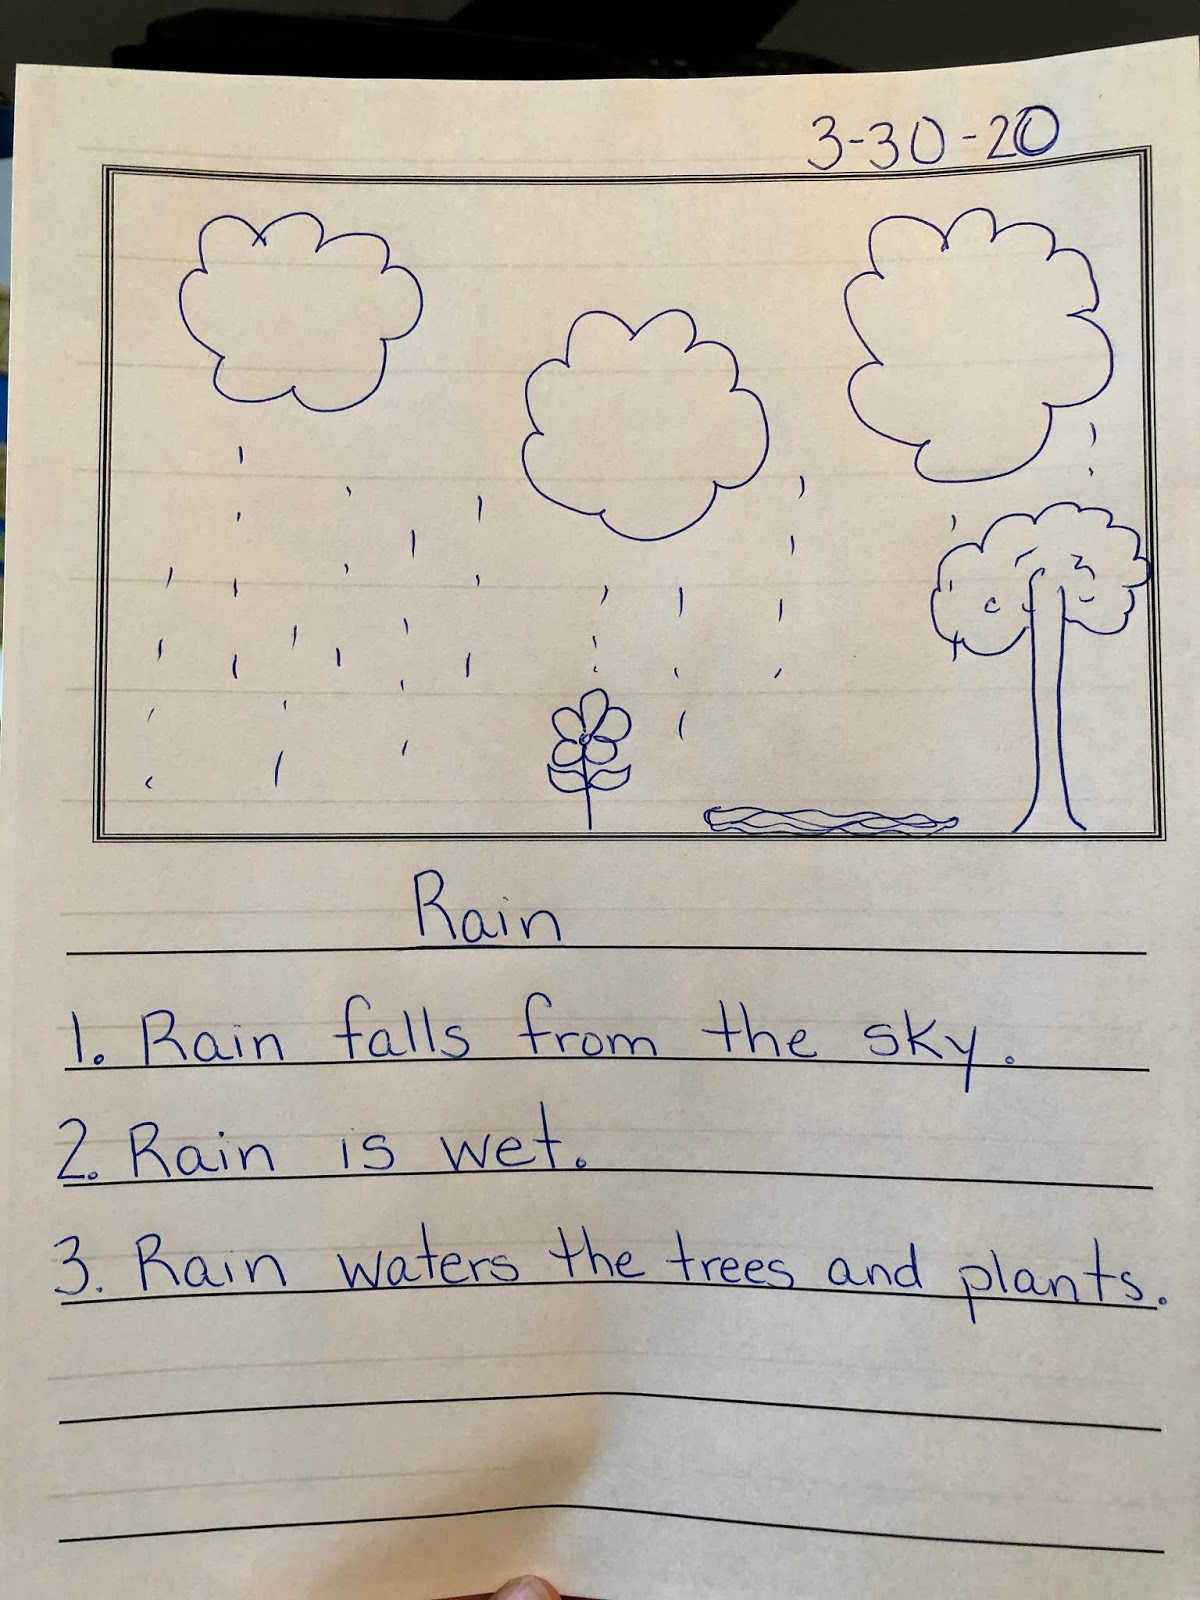 3-30-20
Rain
1. Rain falls from the sky.
2. Rain is wet.
3. Rain waters the trees and plants.